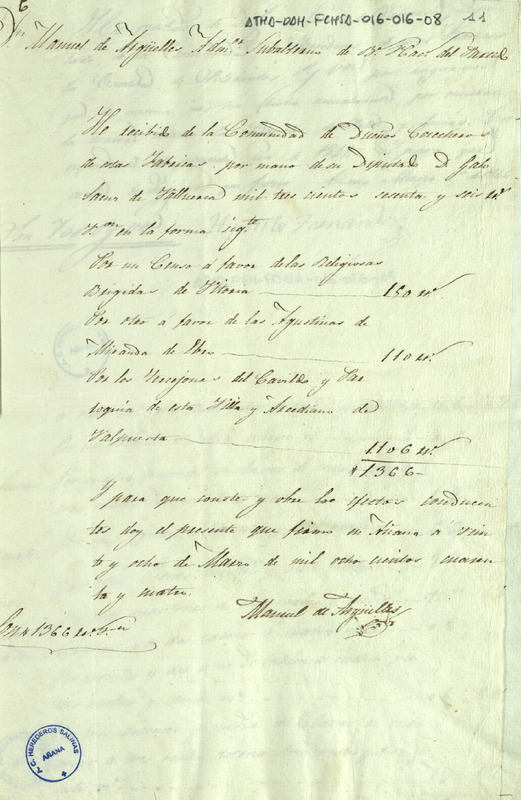 6
ATHA-DAH-FCHSA-016-016-08 11
Dn Manuel de Argüelles Admor Subalterno de Bs Nacs del Partido
He recibido de la Comunidad de Dueños Cosecheros
de estas Fabricas por mano de su Diputado D Galo
Saenz de Valluerca mil tres cientos sesenta y seis rs
Von en la forma sigte
Por un Censo á favor de las Religiosas
Brigidas de Vitoria 150 rs
Por otro á favor de las Agustinas de
Miranda de Ebro 110 rs
Por los Votos del Cavildo y Par
roquia de esta Villa y Arcediano de
Valpuesta 1106 rs
1.366
Y para que conste y obre los efectos conducen
tes doy el presente que firmo en Añana á vein
te y ocho de Marzo de mil ocho cientos cuaren
ta y cuatro.
Manuel de Argüelles
Son 1366 rs vn
C. HEREDEROS SALINAS
AÑANA